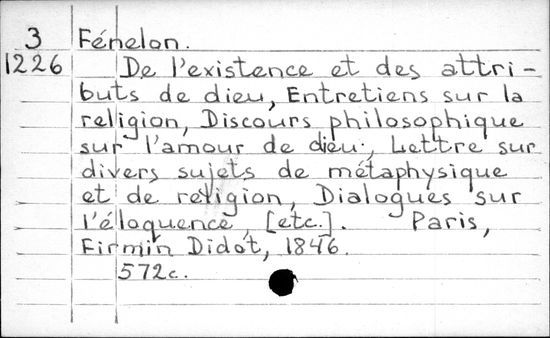 3 Fénelon.
1226 De l'existence et des attri-
buts de dieu, Entretiens sur la
religion, Discours philosophique
sur l'amour de dieu, Lettre sur
divers sujets de métaphysique
et de religion, Dialogues sur
l'éloquence, [etc.]. Paris,
Firmin Didot, 1846.
572c.